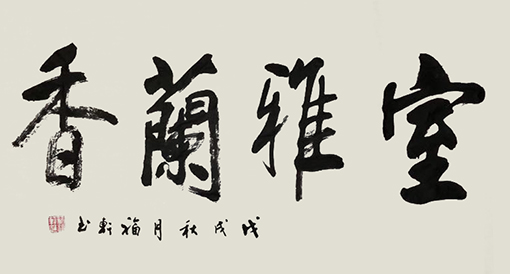 室雅蘭香
戊戌秋月福軒书